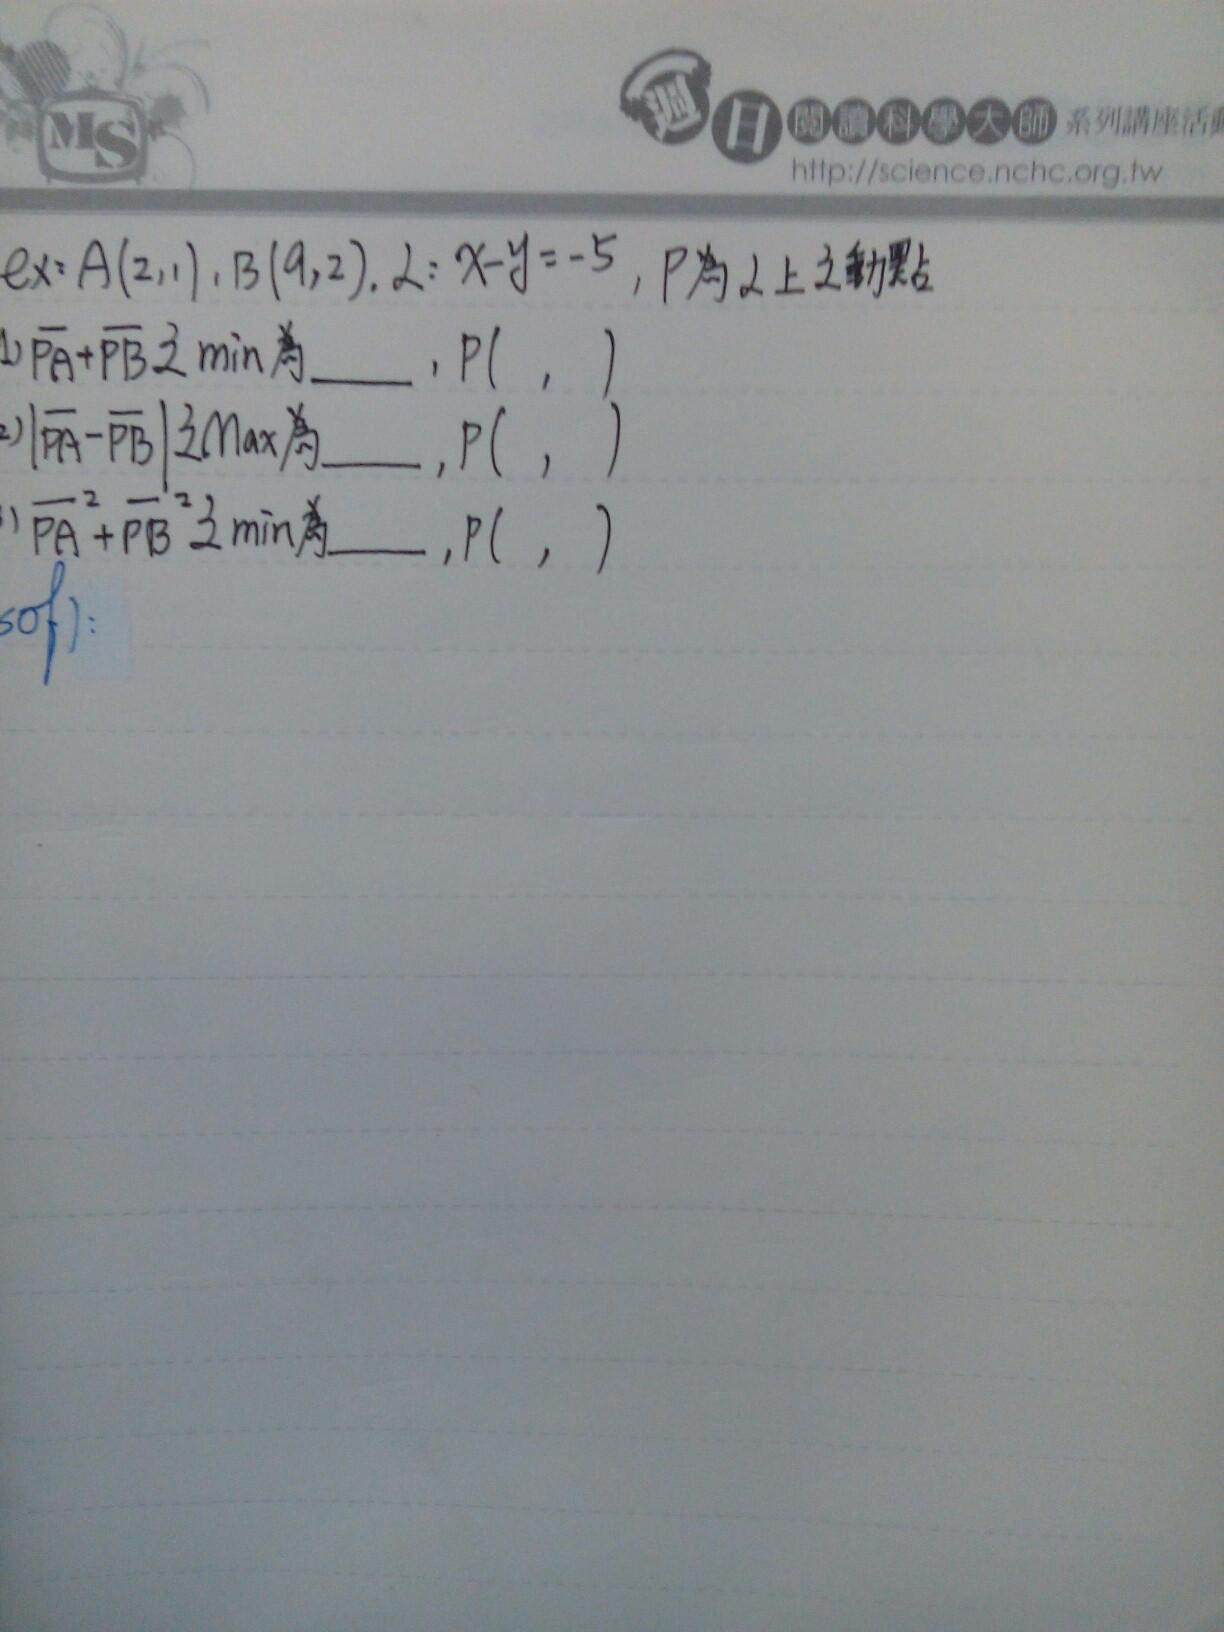 MS
週日閱讀科學大師 系列講座活動
http://science.nchc.org.tw
ex: A(2,1), B(9,2). L: x-y=-5, P為L上之動點
1) PA+PB之min為____, P( , )
2) |PA-PB|之Max為____, P( , )
3) PA²+PB²之min為____, P( , )
sol):